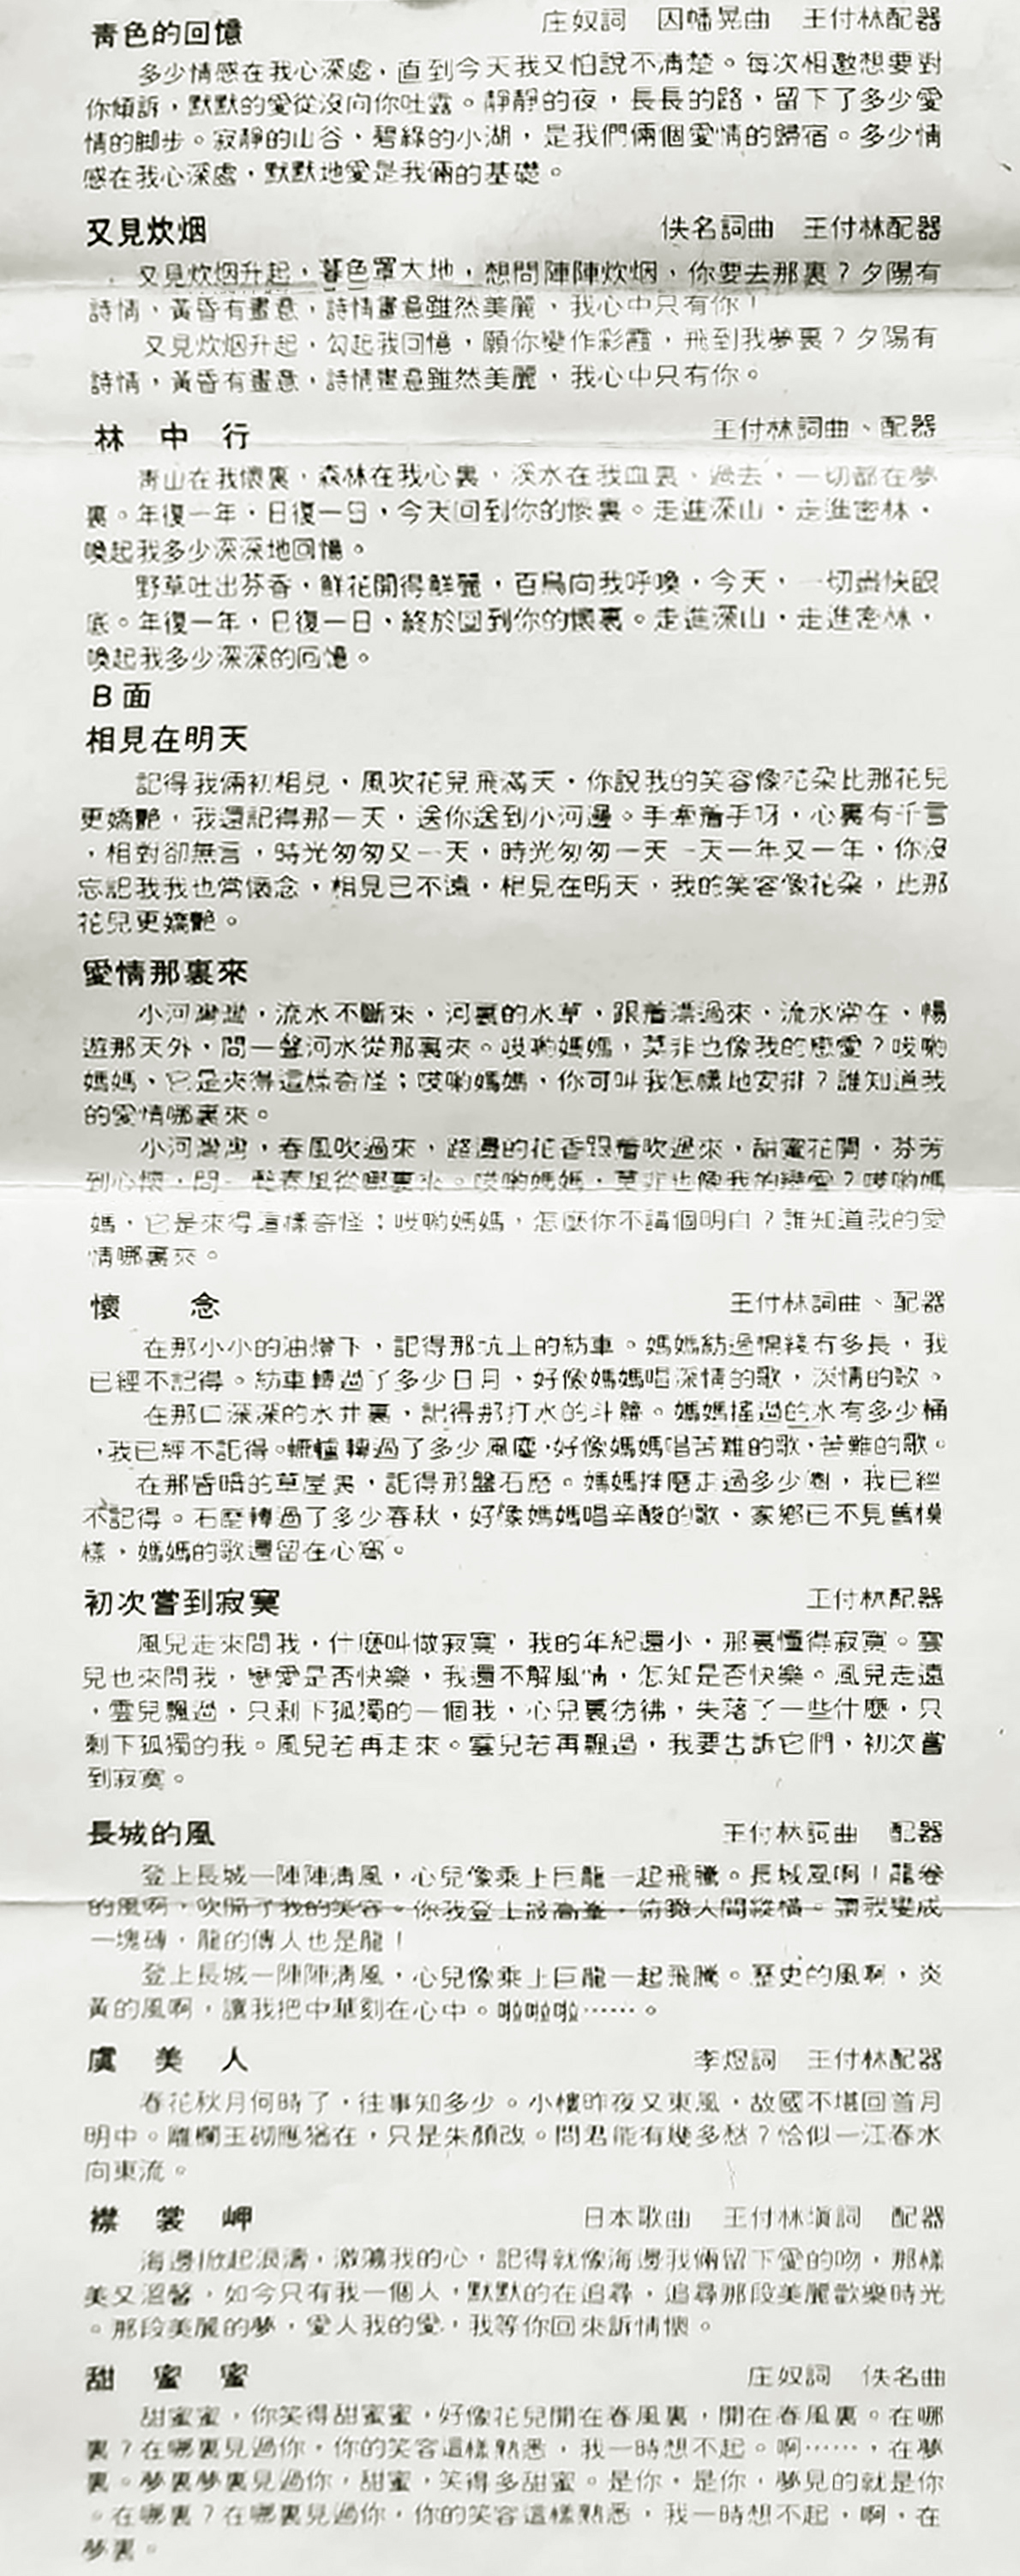 青色的回憶　庄奴詞　因幡晃曲　王付林配器
多少情感在我心深處，直到今天我又怕說不清楚。每次相邀想要對
你傾訴，默默的愛從沒向你吐露。靜靜的夜，長長的路，留下了多少愛
情的脚步。寂靜的山谷，碧綠的小湖，是我們倆個愛情的歸宿。多少情
感在我心深處，默默地愛是我倆的基礎。
又見炊烟　佚名詞曲　王付林配器
又見炊烟升起，暮色罩大地，想問陣陣炊烟，你要去那裏？夕陽有
詩情，黃昏有畫意，詩情畫意雖然美麗，我心中只有你！
又見炊烟升起，勾起我回憶，願你變作彩霞，飛到我夢裏？夕陽有
詩情，黃昏有畫意，詩情畫意雖然美麗，我心中只有你。
林中行　王付林詞曲、配器
青山在我懷裏，森林在我心裏，溪水在我血裏、過去，一切都在夢
裏。年復一年，日復一日，今天回到你的懷裏。走進深山，走進密林，
喚起我多少深深地回憶。
野草吐出芬香，鮮花開得鮮麗，百鳥向我呼喚，今天，一切盡快眼
底。年復一年，日復一日，終於回到你的懷裏。走進深山，走進密林，
喚起我多少深深的回憶。
B面
相見在明天
記得我倆初相見，風吹花兒飛滿天，你說我的笑容像花朵比那花兒
更嬌艷，我還記得那一天，送你送到小河邊。手牽着手呀，心裏有千言
，相對卻無言，時光匆匆又一天，時光匆匆一天一天一年又一年，你沒
忘記我我也常懷念，相見已不遠，相見在明天，我的笑容像花朵，比那
花兒更嬌艷。
愛情那裏來
小河灣灣，流水不斷來，河裏的水草，跟着漂過來，流水常在，暢
遊那天外，問一聲河水從那裏來。哎喲媽媽，莫非也像我的戀愛？哎喲
媽媽、它是來得這樣奇怪；哎喲媽媽，你可叫我怎樣地安排？誰知道我
的愛情哪裏來。
小河灣灣，春風吹過來，路邊的花香跟着吹過來，甜蜜花開，芬芳
到心懷，問一聲春風從哪裏來。哎喲媽媽，莫非也像我的戀愛？哎喲媽
媽，它是來得這樣奇怪；哎喲媽媽，怎麽你不講個明白？誰知道我的愛
情哪裏來。
懷念　王付林詞曲、配器
在那小小的油燈下，記得那炕上的紡車。媽媽紡過棉綫有多長，我
已經不記得。紡車轉過了多少日月，好像媽媽唱深情的歌，深情的歌。
在那口深深的水井裏，記得那打水的轆轤。媽媽搖過的水有多少桶
，我已經不記得。轆轤轉過了多少風塵，好像媽媽唱苦難的歌，苦難的歌。
在那昏暗的草屋裏，記得那盤石磨。媽媽推磨走過多少圈，我已經
不記得。石磨轉過了多少春秋，好像媽媽唱辛酸的歌，家鄉已不見舊模
樣，媽媽的歌還留在心窩。
初次嘗到寂寞　王付林配器
風兒走來問我，什麽叫做寂寞，我的年紀還小，那裏懂得寂寞。雲
兒也來問我，戀愛是否快樂，我還不解風情，怎知是否快樂。風兒走遠
，雲兒飄過，只剩下孤獨的一個我，心兒裏彷彿，失落了一些什麽，只
剩下孤獨的我。風兒若再走來。雲兒若再飄過，我要告訴它們，初次嘗
到寂寞。
長城的風　王付林詞曲　配器
登上長城一陣陣清風，心兒像乘上巨龍一起飛騰。長城風啊！龍卷
的風啊，吹開了我的笑容。你我登上最高峯，俯瞰人間縱橫。讓我變成
一塊磚，龍的傳人也是龍！
登上長城一陣陣清風，心兒像乘上巨龍一起飛騰。歷史的風啊，炎
黃的風啊，讓我把中華刻在心中。啦啦啦……。
虞美人　李煜詞　王付林配器
春花秋月何時了，往事知多少。小樓昨夜又東風，故國不堪回首月
明中。雕欄玉砌應猶在，只是朱顏改。問君能有幾多愁？恰似一江春水
向東流。
襟裳岬　日本歌曲　王付林填詞　配器
海邊掀起浪濤，激蕩我的心，記得就像海邊我倆留下愛的吻，那樣
美又溫馨，如今只有我一個人，默默的在追尋，追尋那段美麗歡樂時光
。那段美麗的夢，愛人我的愛，我等你回來訴情懷。
甜蜜蜜　庄奴詞　佚名曲
甜蜜蜜，你笑得甜蜜蜜，好像花兒開在春風裏，開在春風裏。在哪
裏？在哪裏見過你，你的笑容這樣熟悉，我一時想不起。啊……，在夢
裏。夢裏夢裏見過你，甜蜜，笑得多甜蜜。是你，是你，夢見的就是你
。在哪裏？在哪裏見過你，你的笑容這樣熟悉，我一時想不起，啊，在
夢裏。